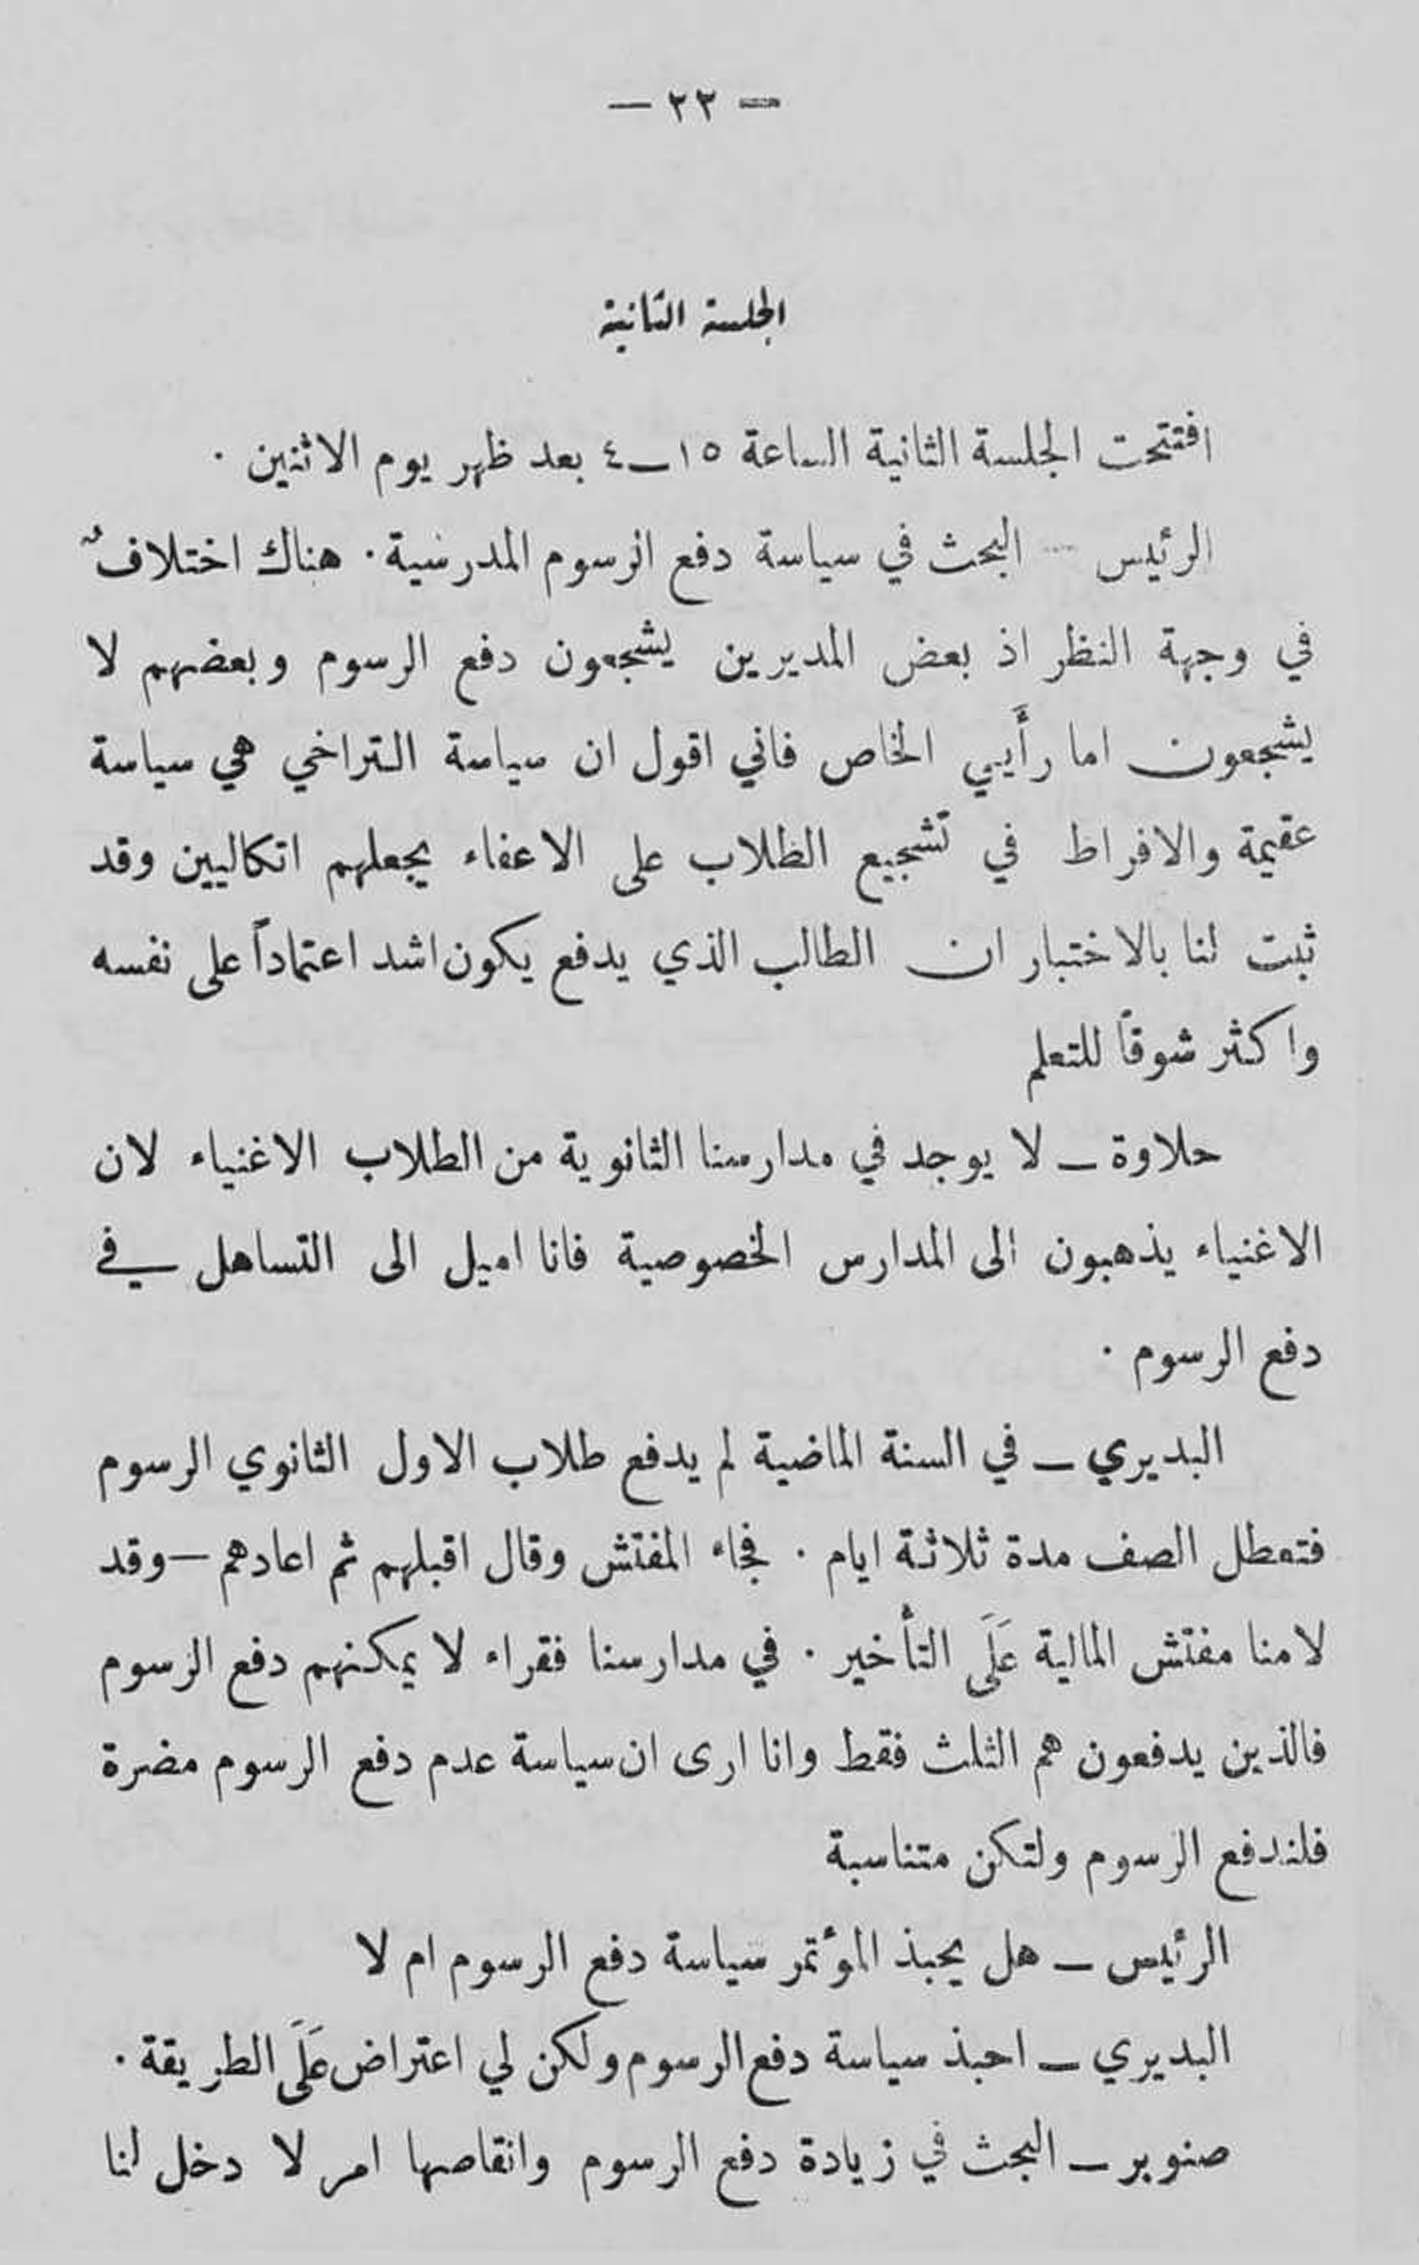 — ٢٣ —
الجلسة الثانية
افتتحت الجلسة الثانية الساعة ١٥ــ٤ بعد ظهر يوم الاثنين .
الرئيس — البحث في سياسة دفع الرسوم المدرسية . هناك اختلافٌ
في وجهة النظر اذ بعض المديرين يشجعون دفع الرسوم وبعضهم لا
يشجعون اما رأيي الخاص فاني اقول ان سياسة التراخي هي سياسة
عقيمة والافراط في تشجيع الطلاب على الاعفاء يجعلهم اتكاليين وقد
ثبت لنا بالاختبار ان الطالب الذي يدفع يكون اشد اعتماداً على نفسه
واكثر شوقاً للتعلم
حلاوة — لا يوجد في مدارسنا الثانوية من الطلاب الاغنياء لان
الاغنياء يذهبون الى المدارس الخصوصية فانا اميل الى التساهل في
دفع الرسوم .
البديري — في السنة الماضية لم يدفع طلاب الاول الثانوي الرسوم
فتعطل الصف مدة ثلاثة ايام . فجاء المفتش وقال اقبلهم ثم اعادهم — وقد
لامنا مفتش المالية عَلَى التأخير . في مدارسنا فقراء لا يمكنهم دفع الرسوم
فالذين يدفعون هم الثلث فقط وانا ارى ان سياسة عدم دفع الرسوم مضرة
فلندفع الرسوم ولتكن متناسبة
الرئيس — هل يحبذ المؤتمر سياسة دفع الرسوم ام لا
البديري — احبذ سياسة دفع الرسوم ولكن لي اعتراض عَلَى الطريقة .
صنوبر — البحث في زيادة دفع الرسوم وانقاصها امر لا دخل لنا